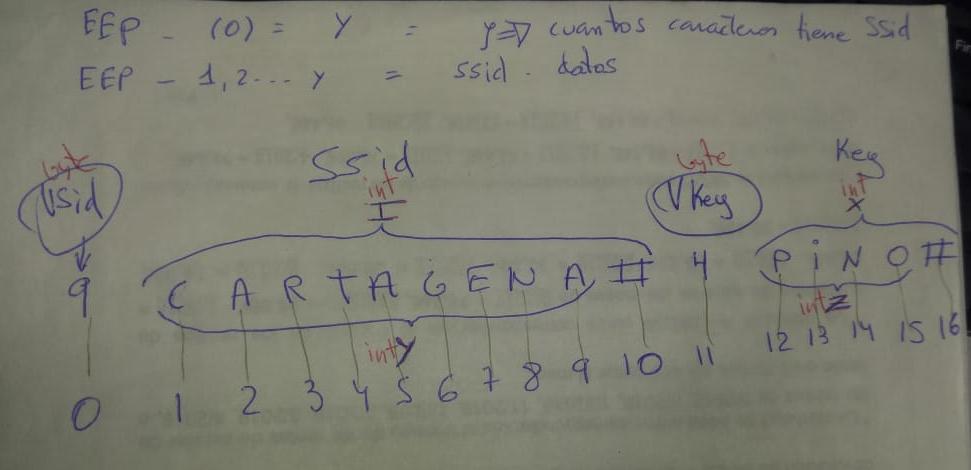 EEP - (0) = Y = y⇒ cuantos caracteres tiene SSid
EEP - 1,2... y = ssid - datos
byte SSid byte Key
VSid int VKey int
I X
9 C A R T A G E N A # 4 P i N O #
int Y int Z
0 1 2 3 4 5 6 7 8 9 10 11 12 13 14 15 16